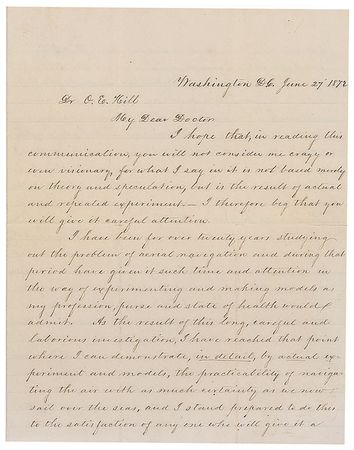 Washington D.C. June 27 1872
Dr O. E. Hill
My Dear Doctor
I hope that, in reading this
communication, you will not consider me crazy or
even visionary, for what I say in it is not based merely
on theory and speculation, but is the result of actual
and repeated experiment — I therefore beg that you
will give it careful attention.
I have been for over twenty years studying
out the problem of aerial navigation and during that
period have given it such time and attention in
the way of experimenting and making models as
my profession, purse and state of health would
admit. As the result of this long, careful and
laborious investigation, I have reached that point
where I can demonstrate, in detail, by actual ex-
periment and models, the practicability of naviga-
ting the air with as much certainty as we now
sail over the seas, and I stand prepared to do this
to the satisfaction of any one who will give it a